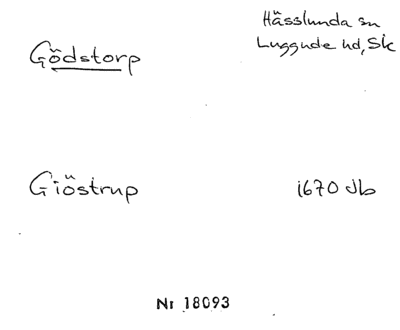 Hässlunda sn
Gödstorp
Luggude hd, Sk
Giöstrup
1670 Jb
Nr 18093